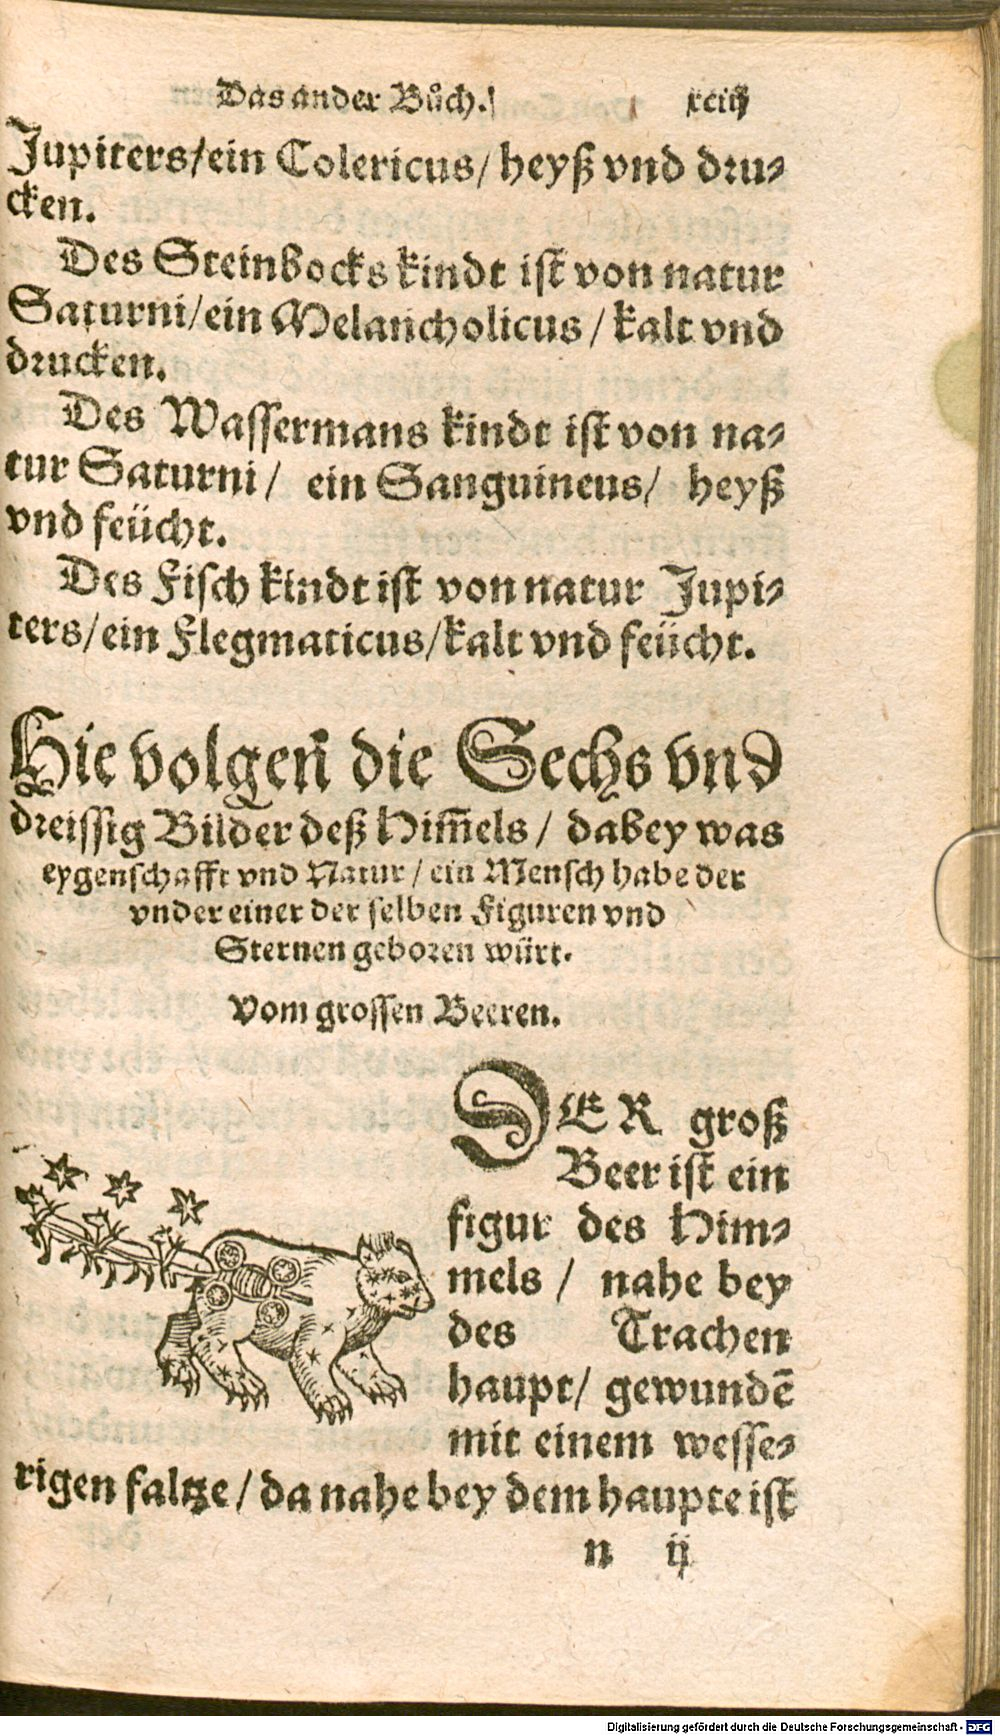 Das ander Bůch. xciij
Jupiters/ein Colericus/heyß vnd dru⸗
cken.
Des Steinbocks kindt ist von natur
Saturni/ein Melancholicus/kalt vnd
drucken.
Des Wassermans kindt ist von na⸗
tur Saturni/ ein Sanguineus/ heyß
vnd feücht.
Des Fisch kindt ist von natur Jupi⸗
ters/ein Flegmaticus/kalt vnd feücht.
Hie volgen die Sechs vnd
dreissig Bilder deß Him̄els/ dabey was
eygenschafft vnd Natur/ein Mensch habe der
vnder einer der selben Figuren vnd
Sternen geboren würt.
Vom grossen Beeren.
DER groß
Beer ist ein
figur des Him⸗
mels/ nahe bey
des Trachen
haupt/ gewundē
mit einem wesse⸗
rigen faltze/da nahe bey dem haupte ist
n ij
Digitalisierung gefördert durch die Deutsche Forschungsgemeinschaft - DFG